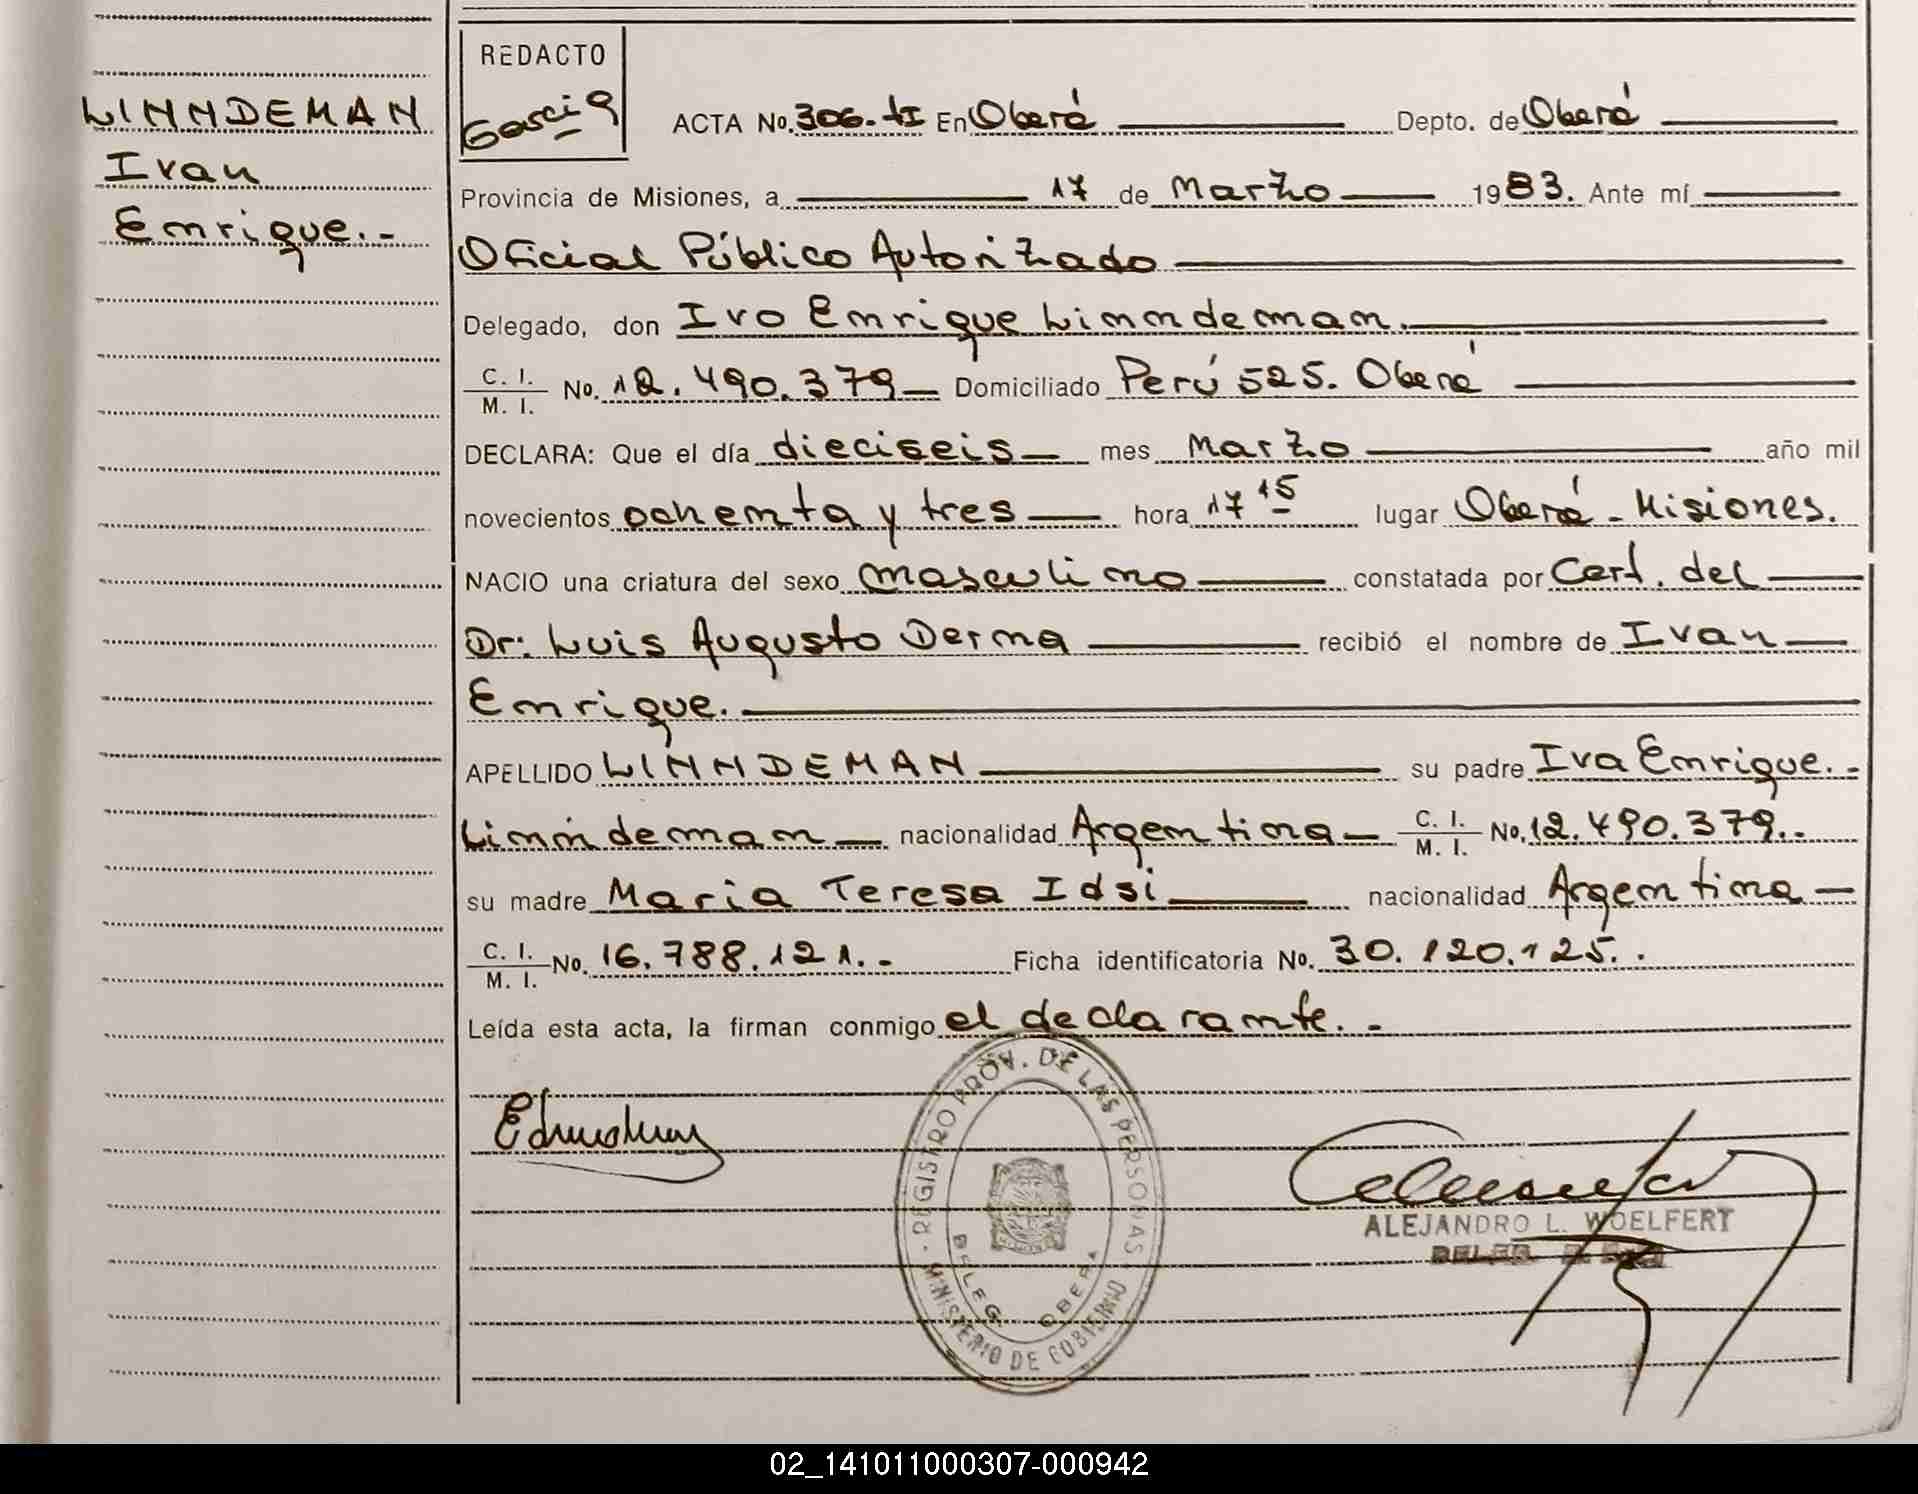 LINNDEMAN
Ivan
Enrique.-
REDACTO
Garcia
ACTA No. 306.tI En Oberá Depto. de Oberá
Provincia de Misiones, a 17 de Marzo 1983. Ante mí
Oficial Público Autorizado
Delegado, don Ivo Enrique Linndeman.
C. I. / M. I. No. 12.490.379 Domiciliado Perú 525. Oberá
DECLARA: Que el día dieciseis mes Marzo año mil
novecientos ochenta y tres hora 17 15 lugar Oberá - Misiones.
NACIO una criatura del sexo masculino constatada por Cert. del
Dr: Luis Augusto Derna recibió el nombre de Ivan
Enrique.
APELLIDO LINNDEMAN su padre Ivo Enrique.-
Linndeman nacionalidad Argentina C. I. / M. I. No. 12.490.379.-
su madre Maria Teresa Idsi nacionalidad Argentina
C. I. / M. I. No. 16.788.121.- Ficha identificatoria No. 30.120.125.
Leída esta acta, la firman conmigo el declarante.-
REGISTRO PROV. DE LAS PERSONAS
MINISTERIO DE GOBIERNO
DELEG. OBERA
ALEJANDRO L. WOELFERT
02_141011000307-000942